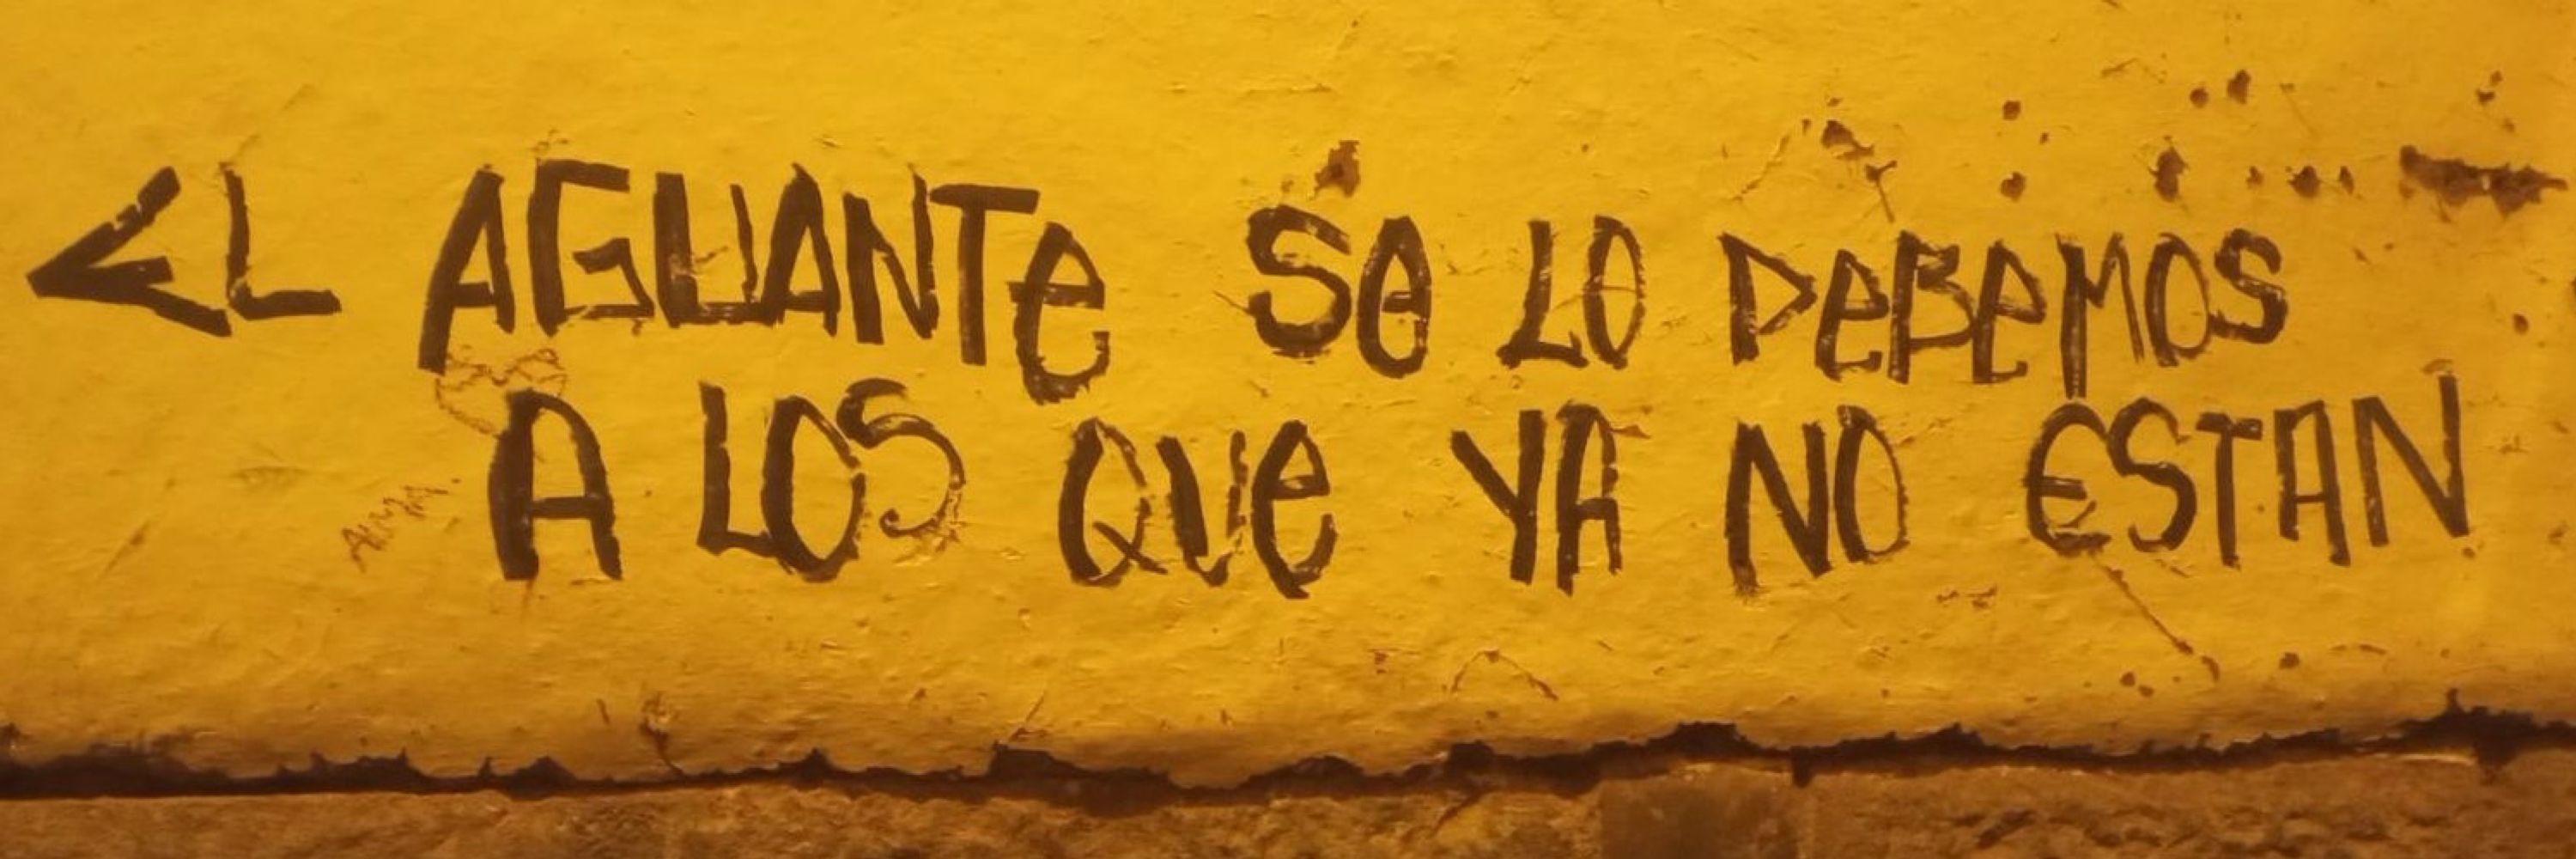 EL AGUANTe Se LO DeBeMOS
A LOS QUe YA NO ESTAN
AMA